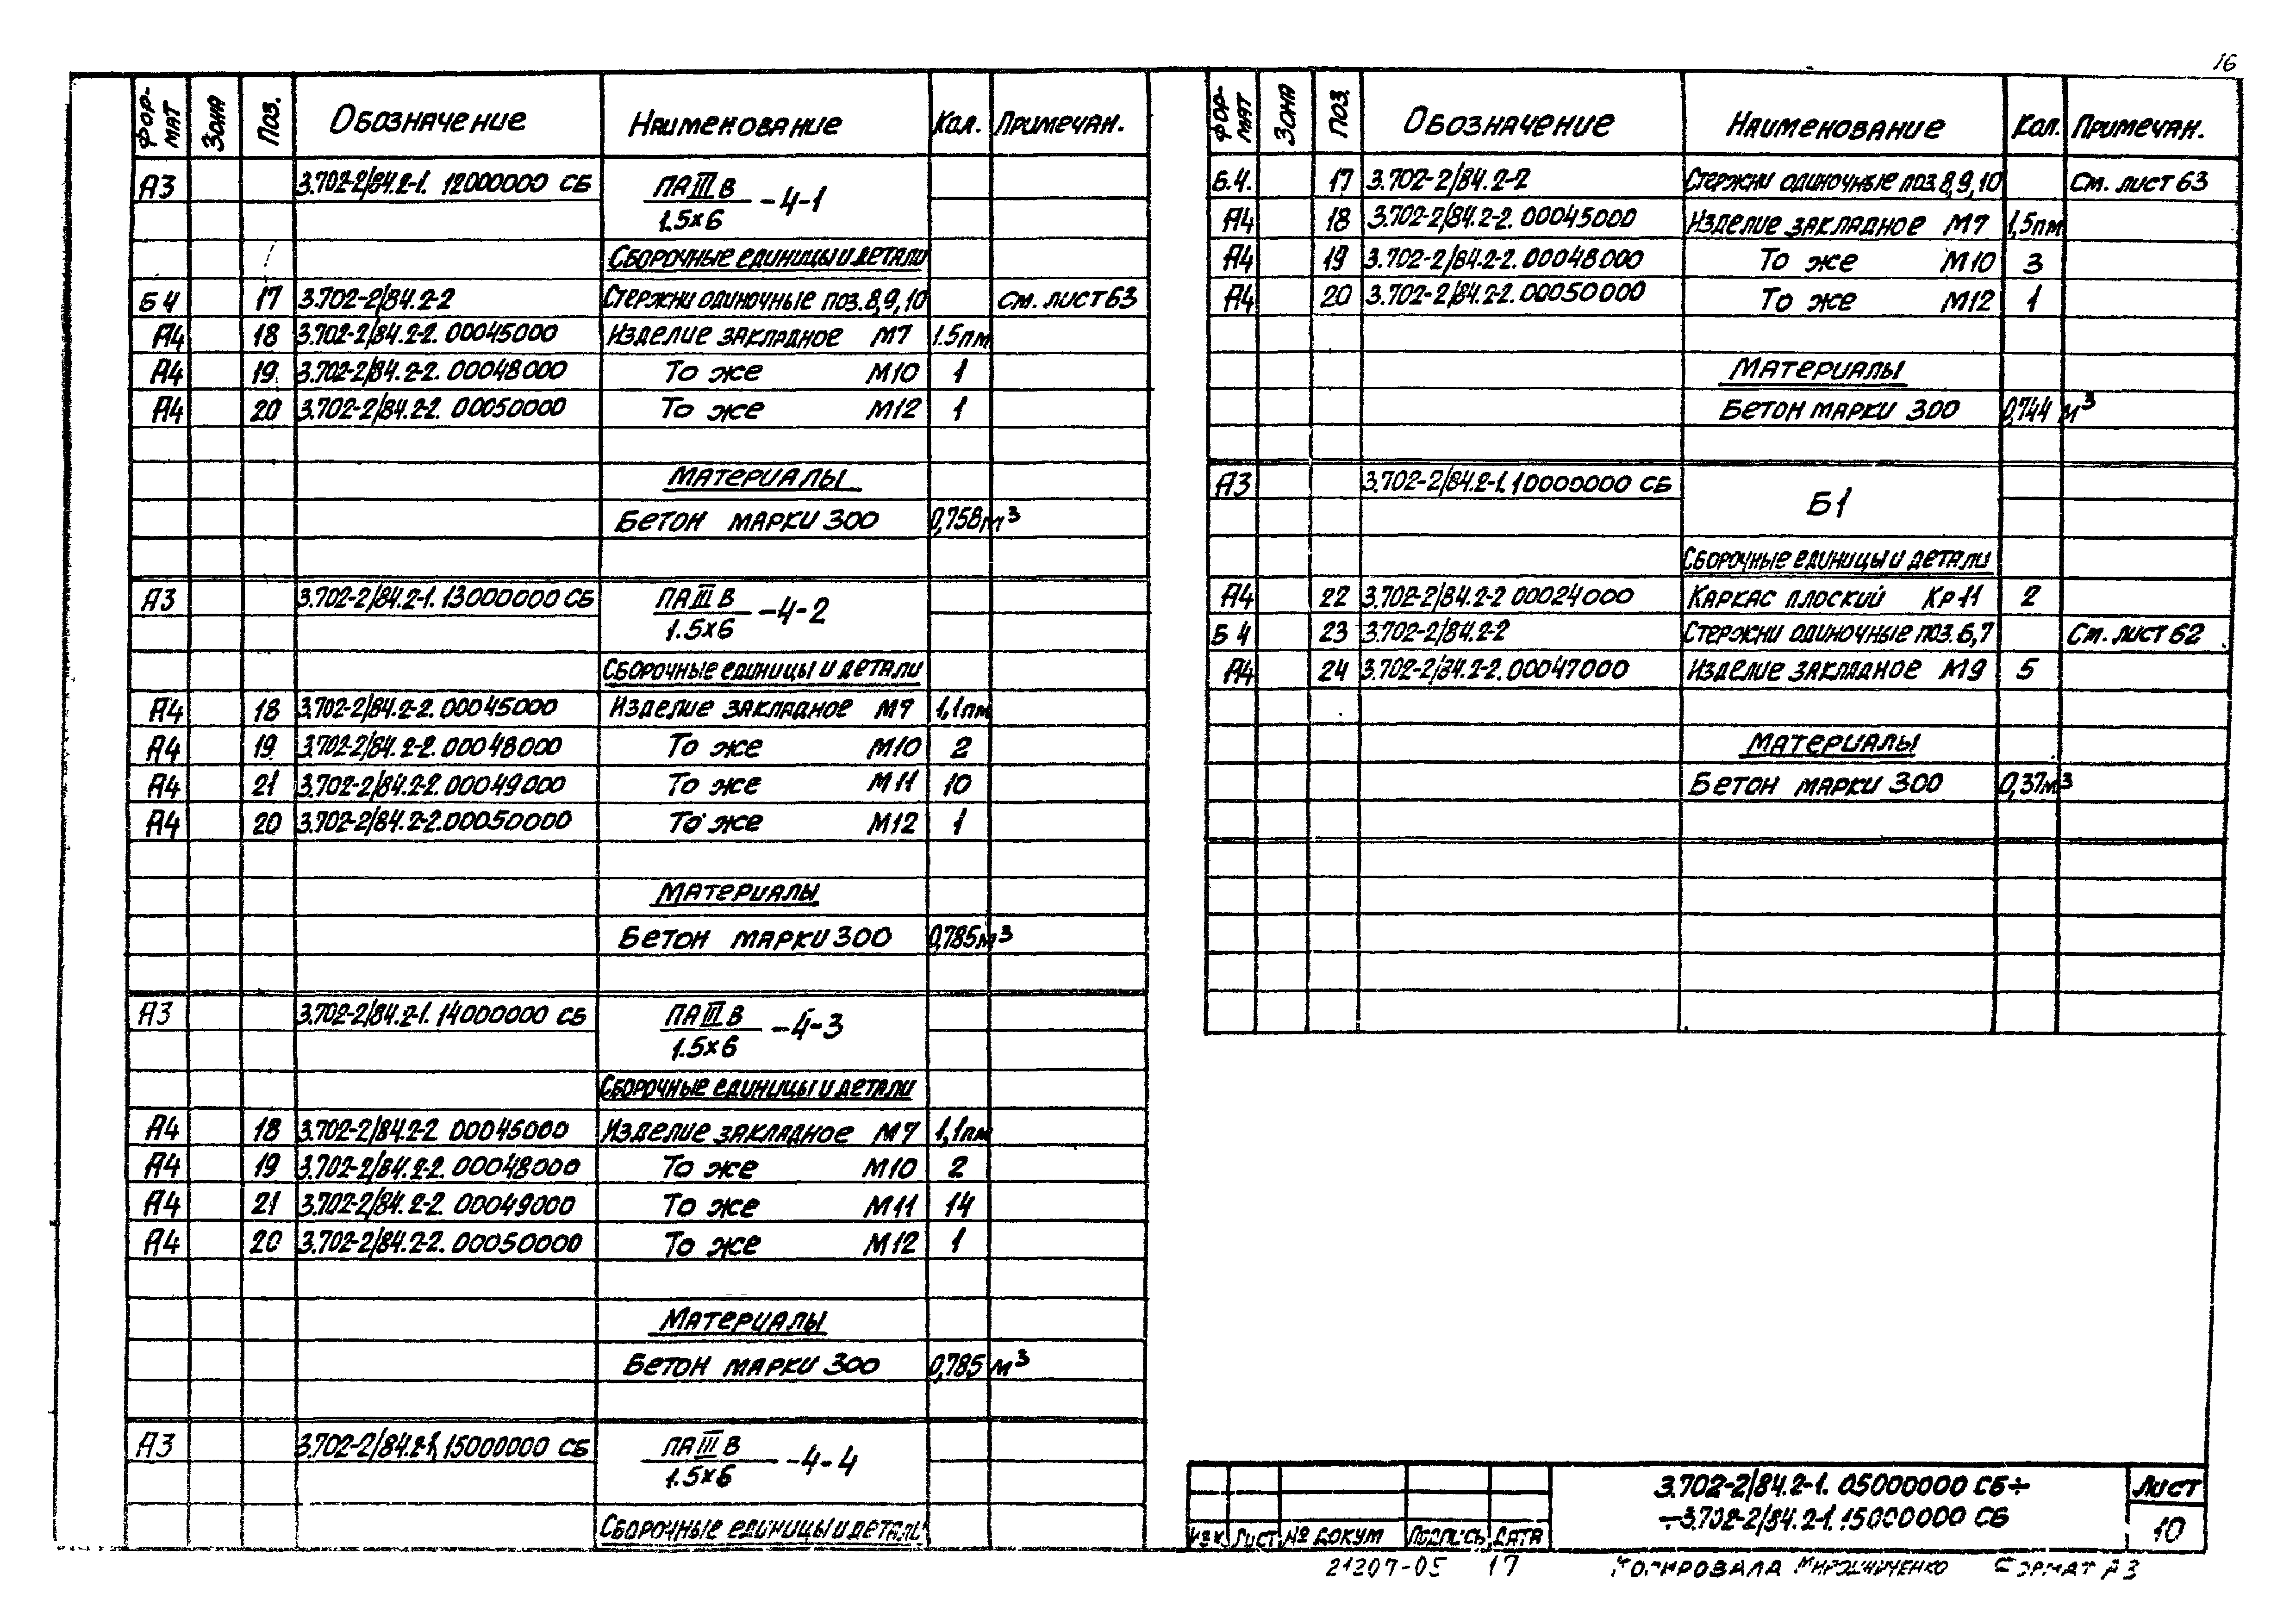 16
Фор-мат Зона Поз. Обозначение Наименование Кол. Примечан.
А3 3.702-2/84.2-1. 12000000 СБ ПАIIIВ
1.5×6 -4-1
Сборочные единицы и детали
Б4 17 3.702-2/84.2-2 Стержни одиночные поз.8,9,10 См. лист 63
А4 18 3.702-2/84.2-2. 00045000 Изделие закладное М7 1.5пм
А4 19 3.702-2/84.2-2. 00048000 То же М10 1
А4 20 3.702-2/84.2-2. 00050000 То же М12 1
Материалы
Бетон марки 300 0,758м³
А3 3.702-2/84.2-1. 13000000 СБ ПАIIIВ
1.5×6 -4-2
Сборочные единицы и детали
А4 18 3.702-2/84.2-2. 00045000 Изделие закладное М7 1,1пм
А4 19 3.702-2/84.2-2. 00048000 То же М10 2
А4 21 3.702-2/84.2-2. 00049000 То же М11 10
А4 20 3.702-2/84.2-2. 00050000 То же М12 1
Материалы
Бетон марки 300 0,785м³
А3 3.702-2/84.2-1. 14000000 СБ ПАIIIВ
1.5×6 -4-3
Сборочные единицы и детали
А4 18 3.702-2/84.2-2. 00045000 Изделие закладное М7 1,1пм
А4 19 3.702-2/84.2-2. 00048000 То же М10 2
А4 21 3.702-2/84.2-2. 00049000 То же М11 14
А4 20 3.702-2/84.2-2. 00050000 То же М12 1
Материалы
Бетон марки 300 0,785 м³
А3 3.702-2/84.2-1. 15000000 СБ ПАIIIВ
1.5×6 -4-4
Сборочные единицы и детали
Фор-мат Зона Поз. Обозначение Наименование Кол. Примечан.
Б.4. 17 3.702-2/84.2-2 Стержни одиночные поз.8,9,10 См. лист 63
А4 18 3.702-2/84.2-2. 00045000 Изделие закладное М7 1,5пм
А4 19 3.702-2/84.2-2. 00048000 То же М10 3
А4 20 3.702-2/84.2-2. 00050000 То же М12 1
Материалы
Бетон марки 300 0,744 м³
А3 3.702-2/84.2-1. 10000000 СБ Б1
Сборочные единицы и детали
А4 22 3.702-2/84.2-2 00024000 Каркас плоский Кр11 2
Б4 23 3.702-2/84.2-2 Стержни одиночные поз.6,7 См. лист 62
А4 24 3.702-2/84.2-2. 00047000 Изделие закладное М9 5
Материалы
Бетон марки 300 0,37м³
3.702-2/84.2-1. 05000000 СБ÷
÷3.702-2/84.2-1. 15000000 СБ
Лист
10
Изм. Лист № докум Подпись Дата
21207-05 17 Копировала Мирошниченко Формат А3